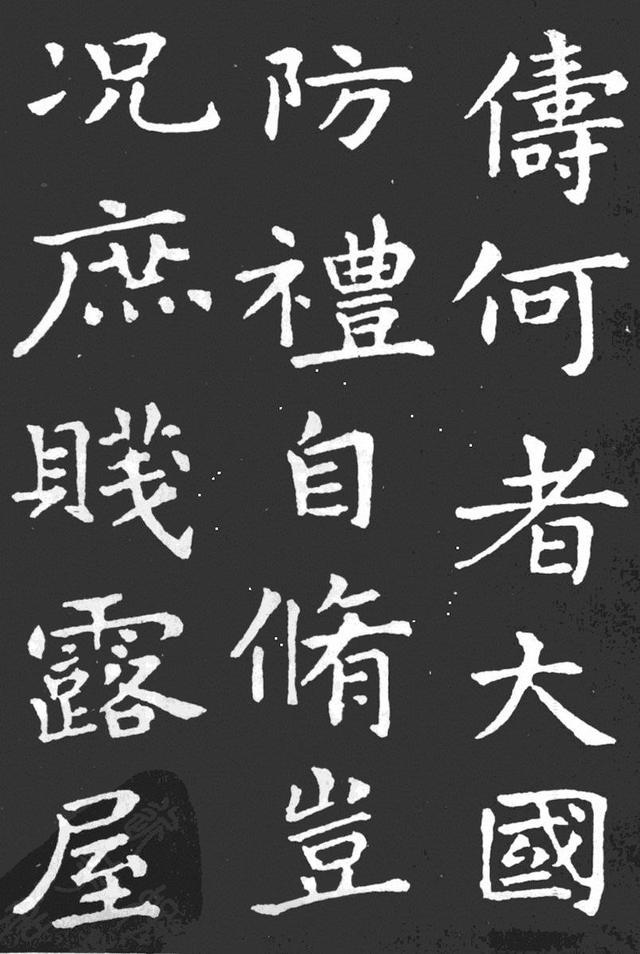 儔何者大國
防禮自脩豈
况庶賤露屋